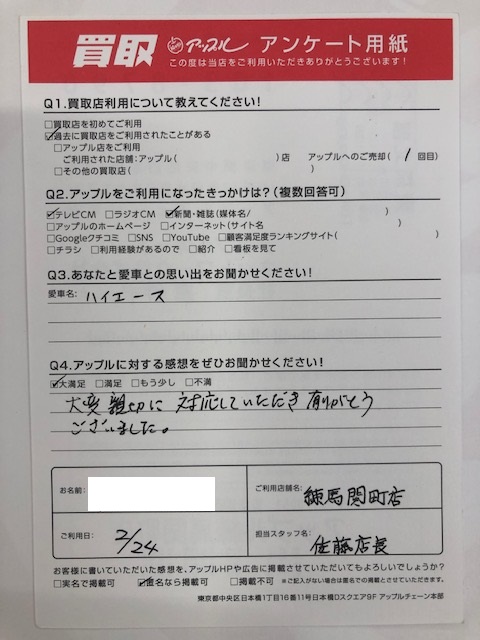 買取 アップル アンケート用紙
この度は当店をご利用いただきありがとうございます！
Q1.買取店利用について教えてください！
□買取店を初めてご利用
☑過去に買取店をご利用されたことがある
□アップル店をご利用
ご利用された店舗：アップル（ ）店 アップルへのご売却（ 1 回目）
□その他の買取店（ ）
Q2.アップルをご利用になったきっかけは？（複数回答可）
☑テレビCM □ラジオCM ☑新聞・雑誌（媒体名/ ）
□アップルのホームページ □インターネット（サイト名 ）
□Googleクチコミ □SNS □YouTube □顧客満足度ランキングサイト（ ）
□チラシ □利用経験があるので □紹介 □看板を見て
Q3.あなたと愛車との思い出をお聞かせください！
愛車名： ハイエース
Q4.アップルに対する感想をぜひお聞かせください！
☑大満足 □満足 □もう少し □不満
大変親切に対応していただき有りがとう
ございました。
お名前：
ご利用店舗名： 練馬関町店
ご利用日： 2/24
担当スタッフ名： 佐藤店長
お客様に書いていただいた感想を、アップルHPや広告に掲載させていただいてもよろしいでしょうか？
□実名で掲載可 ☑匿名なら掲載可 □掲載不可 ※ご記入がない場合は匿名での掲載とさせていただきます。
東京都中央区日本橋1丁目16番11号日本橋Dスクエア9F アップルチェーン本部